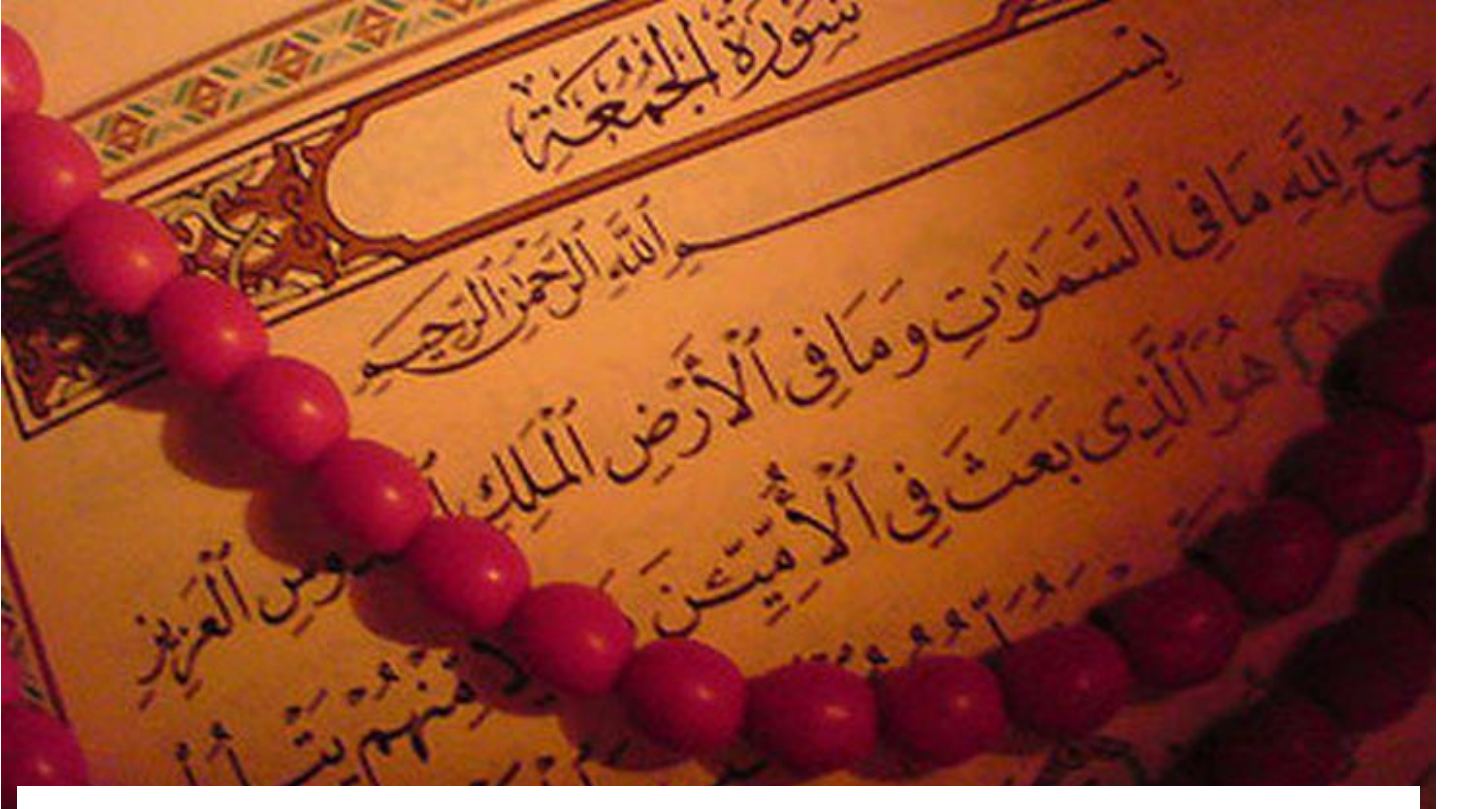 سورة الجمعة
بسم الله الرحمن الرحيم
يسبح لله ما في السموت وما في الأرض الملك
وس العزيز
هو الذي بعث في الأمين
منهم يتلوا